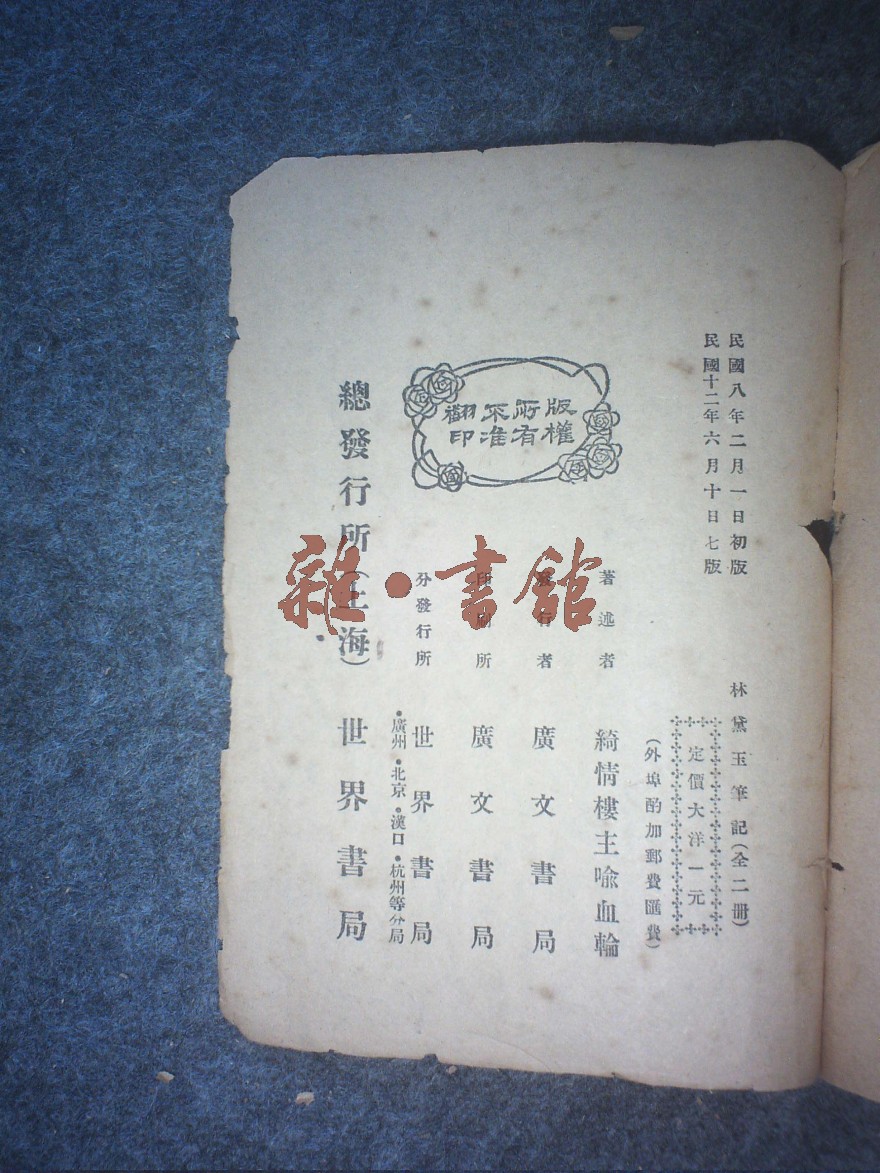 民國八年二月一日初版
民國十二年六月十日七版
林黛玉筆記(全二冊)
定價大洋一元
(外埠酌加郵費匯費)
版權所有
不准翻印
著述者 綺情樓主喩血輪
發行者 廣文書局
印刷所 廣文書局
分發行所 世界書局
•廣州•北京•漢口•杭州等分局
總發行所(上海) 世界書局
雜·書館